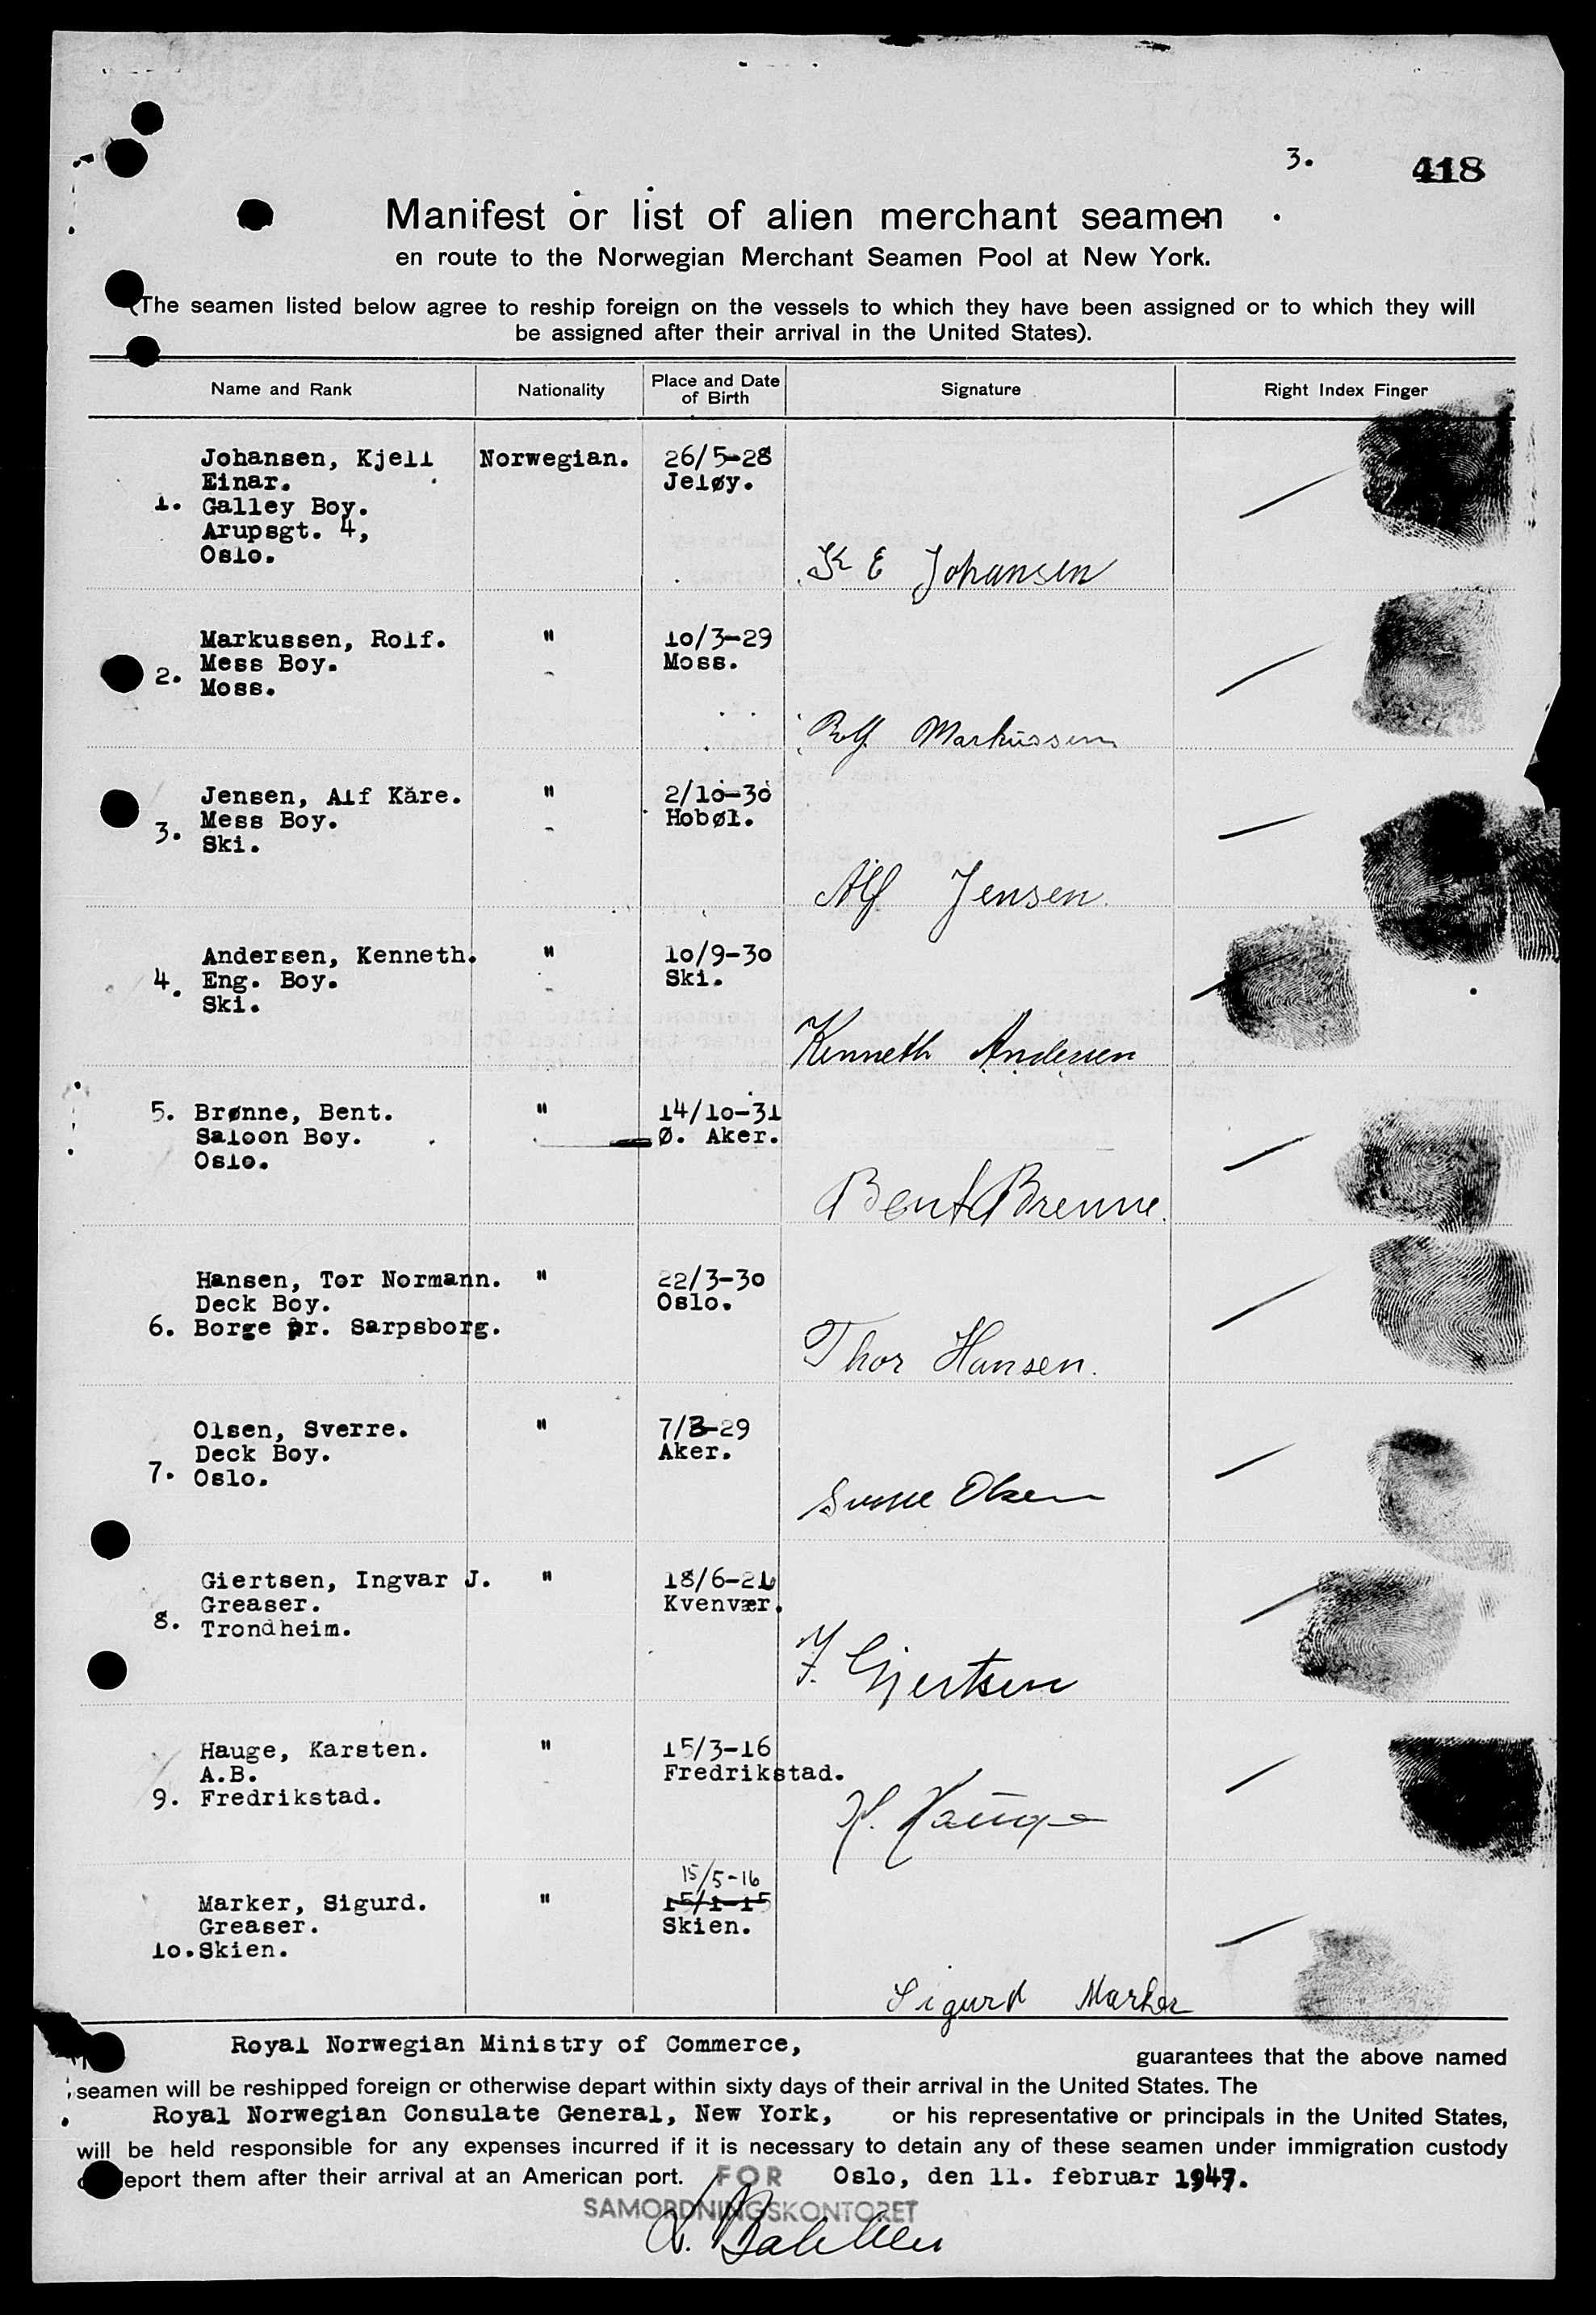 3. 418
Manifest or list of alien merchant seamen
en route to the Norwegian Merchant Seamen Pool at New York.
(The seamen listed below agree to reship foreign on the vessels to which they have been assigned or to which they will
be assigned after their arrival in the United States).
Name and Rank Nationality Place and Date of Birth Signature Right Index Finger
Johansen, Kjell Norwegian. 26/5-28
Einar. Jeløy.
1. Galley Boy.
Arupsgt. 4,
Oslo.
K E Johansen
Markussen, Rolf. " 10/3-29
2. Mess Boy. Moss.
Moss.
Rolf Markussen
Jensen, Alf Kåre. " 2/10-30
3. Mess Boy. Hobøl.
Ski.
Alf Jensen.
Andersen, Kenneth. " 10/9-30
4. Eng. Boy. Ski.
Ski.
Kenneth Andersen
5. Brønne, Bent. " 14/10-31
Saloon Boy. Ø. Aker.
Oslo.
Bent Brenne.
Hansen, Tor Normann. " 22/3-30
Deck Boy. Oslo.
6. Borge pr. Sarpsborg.
Thor Hansen.
Olsen, Sverre. " 7/3-29
Deck Boy. Aker.
7. Oslo.
Sverre Olsen
Giertsen, Ingvar J. " 18/6-21
Greaser. Kvenvær.
8. Trondheim.
I. Gjertsen
Hauge, Karsten. " 15/3-16
A.B. Fredrikstad.
9. Fredrikstad.
K. Hauge
15/5-16
Marker, Sigurd. " 15/1-15
Greaser. Skien.
10. Skien.
Sigurd Marker
Royal Norwegian Ministry of Commerce, guarantees that the above named
seamen will be reshipped foreign or otherwise depart within sixty days of their arrival in the United States. The
Royal Norwegian Consulate General, New York, or his representative or principals in the United States,
will be held responsible for any expenses incurred if it is necessary to detain any of these seamen under immigration custody
eport them after their arrival at an American port. FOR Oslo, den 11. februar 1947.
SAMORDNINGSKONTORET